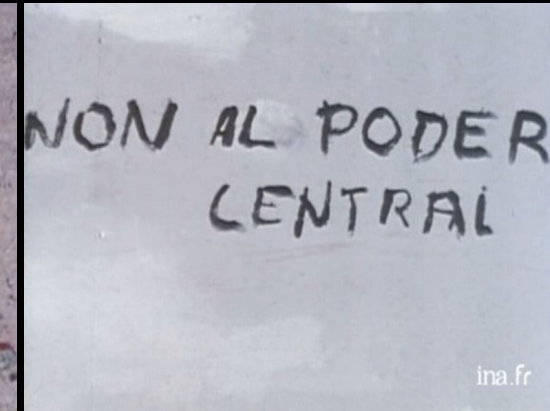 NON AL PODER
CENTRAL
ina.fr